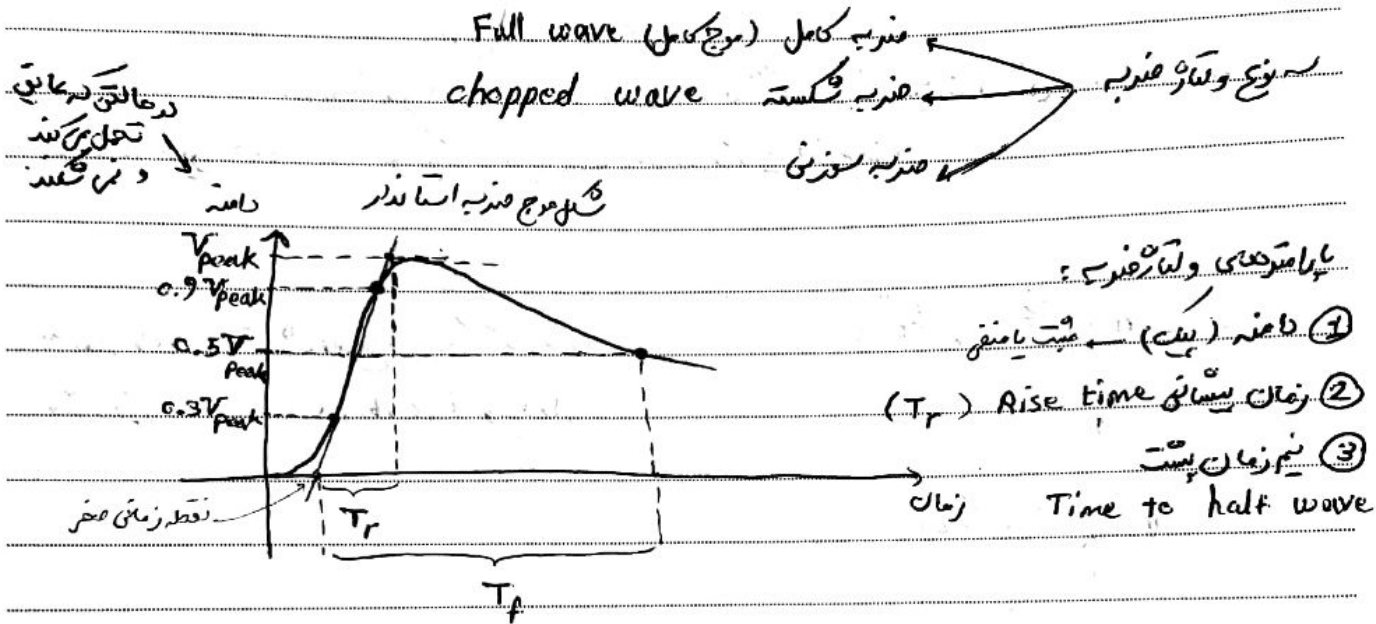 سه نوع ولتاژ ضربه
ضربه کامل (موج کامل) Full wave
ضربه شکسته chopped wave
ضربه سوزنی
در حالتی که عایق
تحمل می‌کند
و نمی‌شکند
شکل موج ضربه استاندارد
دامنه
Vpeak
0.9 Vpeak
0.5 Vpeak
0.3 Vpeak
نقطه زمانی صفر
Tr
Tf
زمان
پارامترهای ولتاژ ضربه :
① دامنه (پیک) ← مثبت یا منفی
② زمان پیشانی Rise time (Tr)
③ نیم زمان پشت
Time to half wave